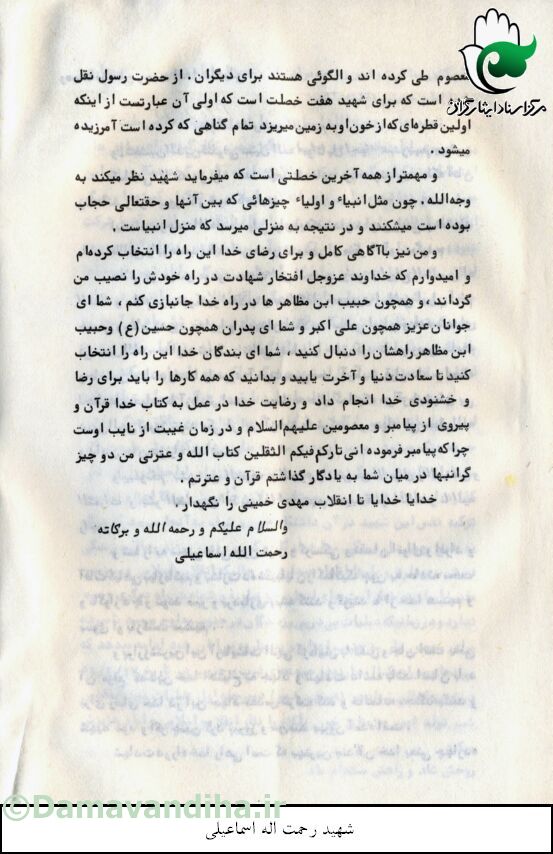 مرکز اسناد ایثارگران
معصوم طی کرده اند و الگوئی هستند برای دیگران . از حضرت رسول نقل
است که برای شهید هفت خصلت است که اولی آن عبارتست از اینکه
اولین قطره‌ای که از خون او به زمین میریزد تمام گناهی که کرده است آمرزیده
میشود .
و مهمتر از همه آخرین خصلتی است که میفرماید شهید نظر میکند به
وجه‌الله . چون مثل انبیاء و اولیاء چیزهائی که بین آنها و حقتعالی حجاب
بوده است میشکنند و در نتیجه به منزلی میرسد که منزل انبیاست .
و من نیز باآگاهی کامل و برای رضای خدا این راه را انتخاب کرده‌ام
و امیدوارم که خداوند عزوجل افتخار شهادت در راه خودش را نصیب من
گرداند ، و همچون حبیب ابن مظاهر ها در راه خدا جانبازی کنم ، شما ای
جوانان عزیز همچون علی اکبر و شما ای پدران همچون حسین (ع) وحبیب
ابن مظاهر راهشان را دنبال کنید ، شما ای بندگان خدا این راه را انتخاب
کنید تا سعادت دنیا و آخرت یابید و بدانید که همه کارها را باید برای رضا
و خشنودی خدا انجام داد و رضایت خدا در عمل به کتاب خدا قرآن و
پیروی از پیامبر و معصومین علیهم‌السلام و در زمان غیبت از نایب اوست
چرا که پیامبر فرموده انی تارکم فیکم الثقلین کتاب الله و عترتی من دو چیز
گرانبها در میان شما به یادگار گذاشتم قرآن و عترتم .
خدایا خدایا تا انقلاب مهدی خمینی را نگهدار .
والسلام علیکم و رحمه الله و برکاته
رحمت الله اسماعیلی
©Damavandiha.ir
شهید رحمت اله اسماعیلی